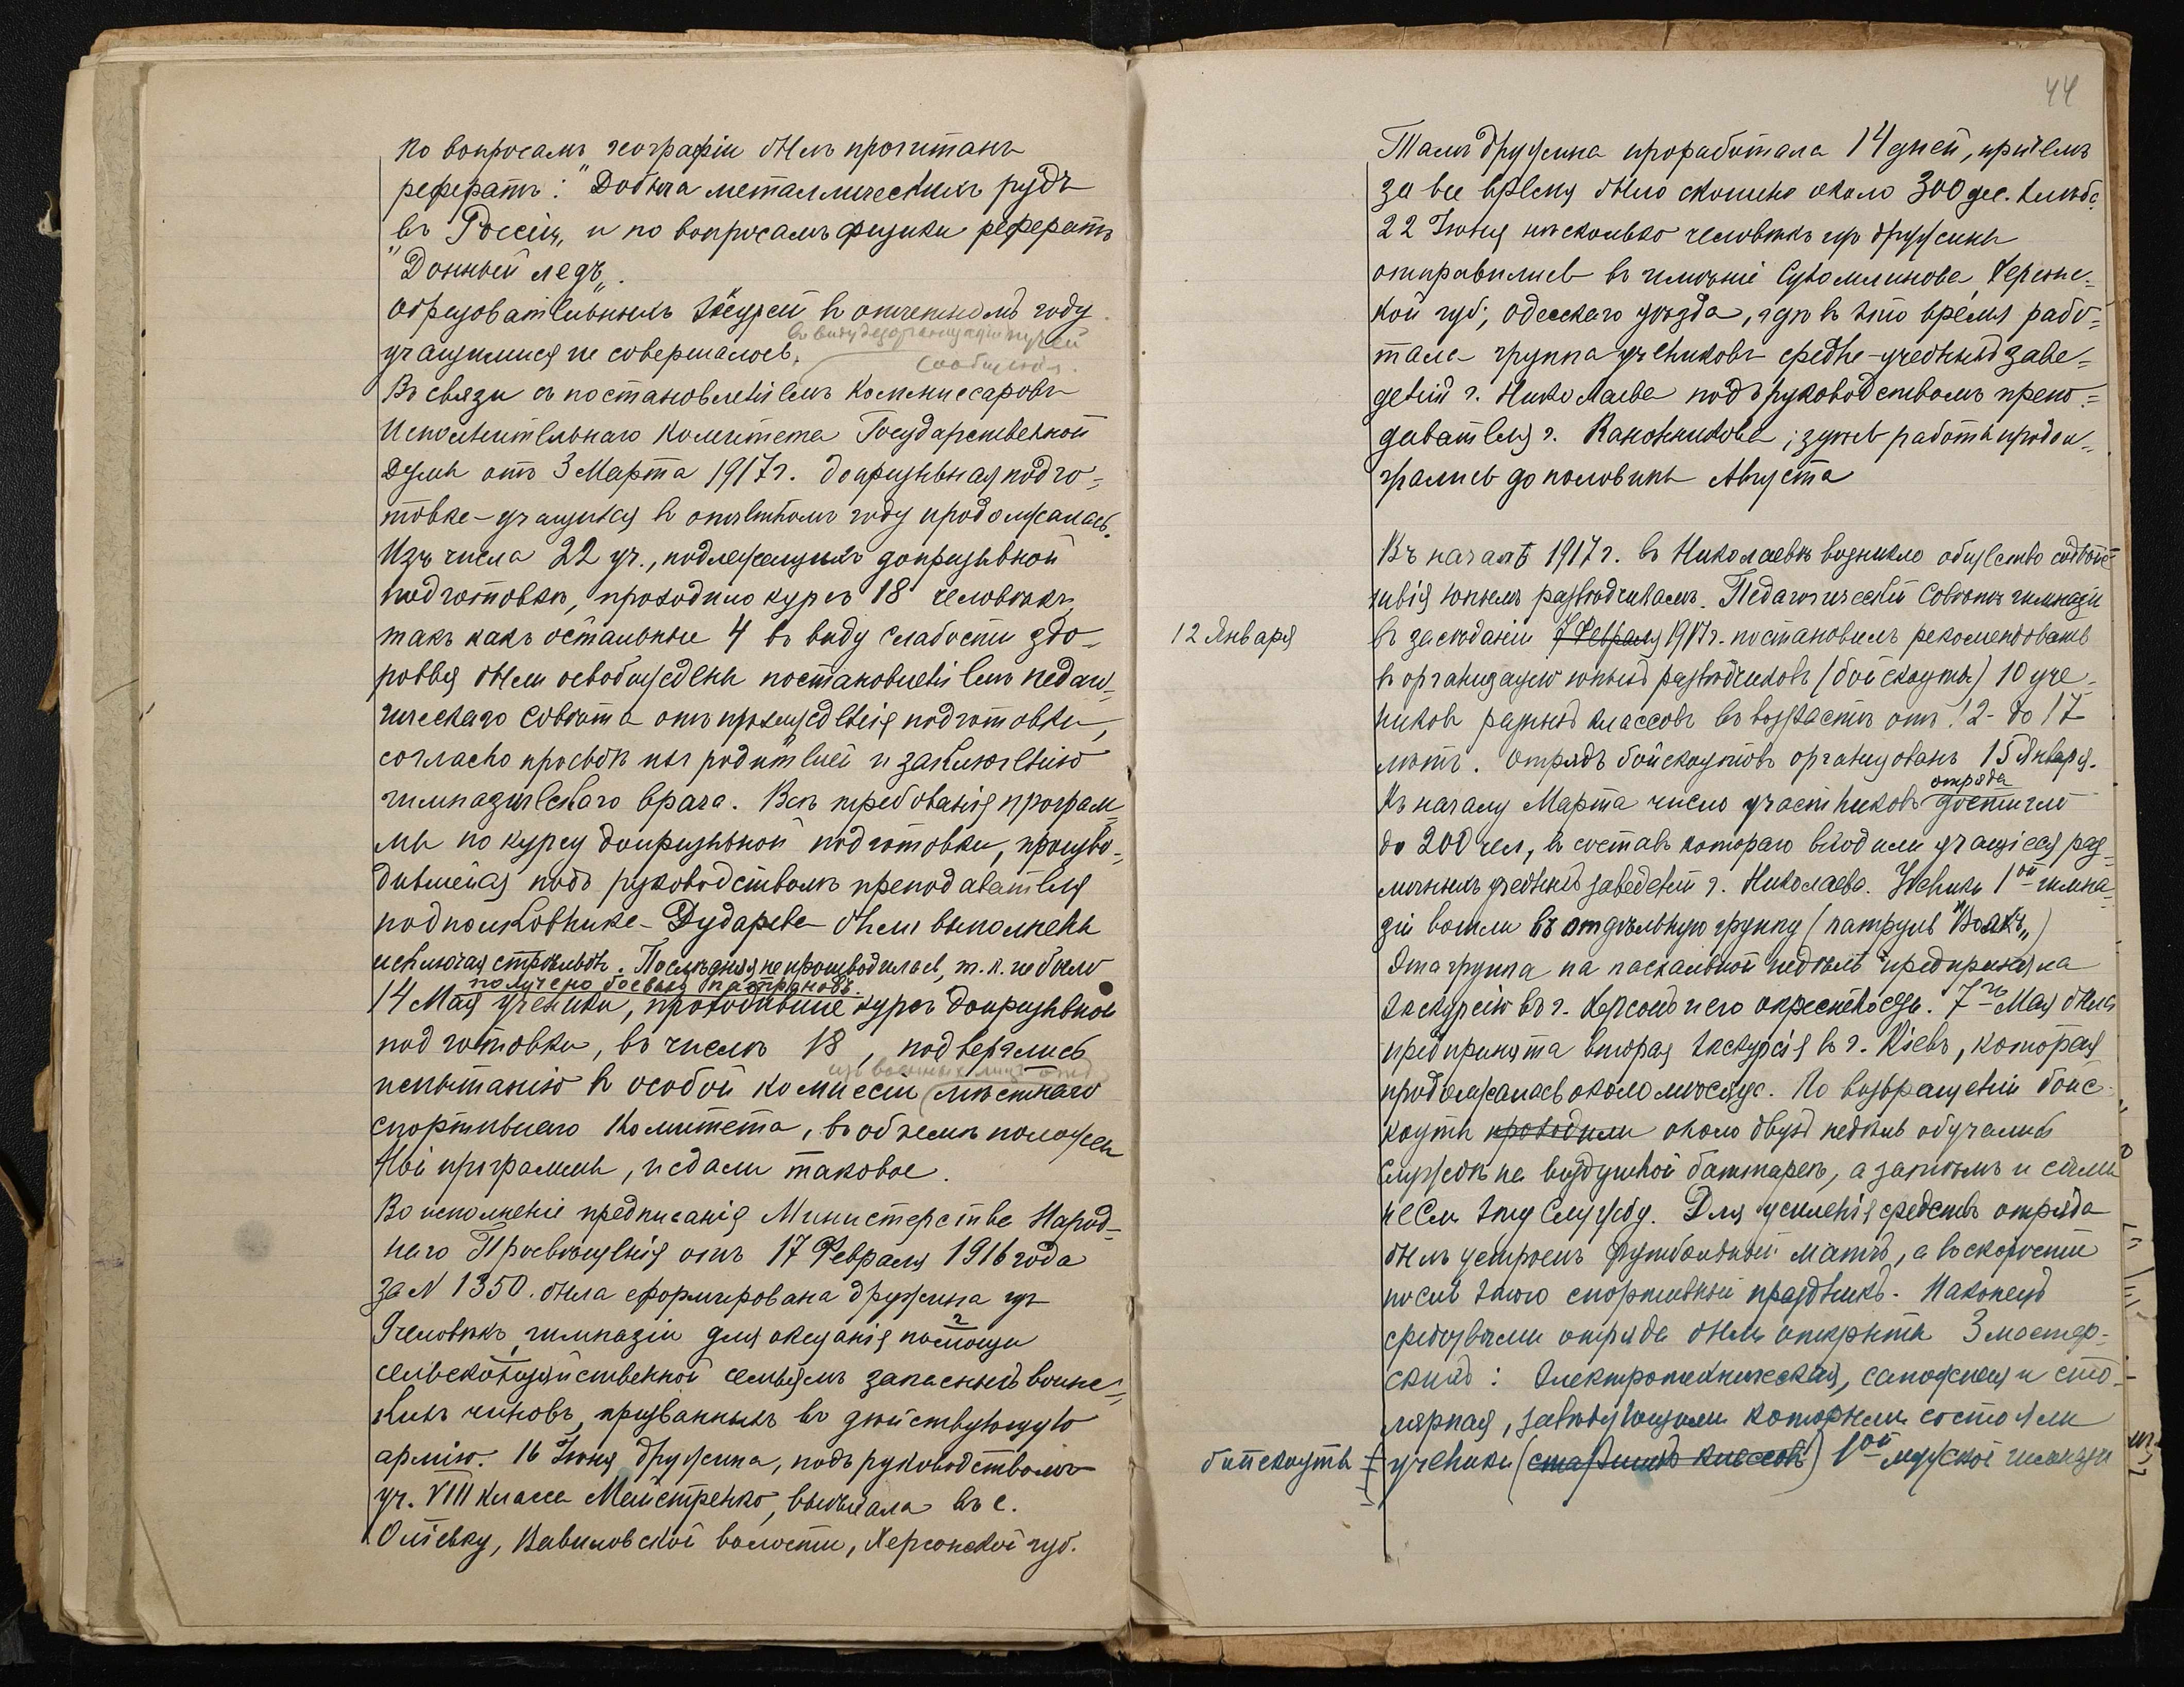 по вопросамъ географіи былъ прочитанъ
рефератъ: "Добыча металлическихъ рудъ
въ Россіи„ и по вопросамъ физики рефератъ
"Донный ледъ„.
Образовательныхъ экскурсій въ отчетномъ году
въ виду дезорганизаціи путей
учащимися не совершалось.
сообщенія.
Въ связи съ постановленіемъ Коммиссаровъ
Исполнительнаго Комитета Государственной
Думы отъ 3 Марта 1917 г. допризывная подго=
товка учащихся въ отчетномъ году продолжалась.
Изъ числа 22 уч., подлежащихъ допризывной
подготовкѣ, проходило курсъ 18 человѣкъ,
такъ какъ остальные 4 въ виду слабости здо=
ровья были освобождены постановленіемъ педаго=
гическаго совѣта отъ прохожденія подготовки,
согласно просьбѣ ихъ родителей и заключенію
гимназическаго врача. Всѣ требованія програм=
мы по курсу допризывной подготовки, произво=
дившейся подъ руководствомъ преподавателя
подполковника Дударева были выполнены
исключая стрѣльбы. Послѣдняя не производилась, т. к. не было
получено боевыхъ патроновъ.
14 Мая ученики, проходившіе курсъ допризывной
подготовки, въ числѣ 18, подверглись
изъ военныхъ лицъ
испытанію въ особой комиссіи (мѣстнаго
спортивнаго Комитета, въ объемѣ положен
ной программы, и сдали таковое.
Во исполненіе предписанія Министерства Народ=
наго Просвѣщенія отъ 17 Февраля 1916 года
за N 1350. была сформирована дружина изъ
9 человѣкъ гимназіи для оказанія помощи
сельскохозяйственной семьямъ запасныхъ воинс=
кихъ чиновъ, призванныхъ въ дѣйствующую
армію. 16 Іюня дружина, подъ руководствомъ
уч. VIII класса Майстренко, выѣхала въ с.
Вавиловской волости, Херсонской губ.
44
Тамъ дружина проработала 14 дней, причемъ
за все время было скошено около 300 дес. хлѣба.
22 Іюня нѣсколько человѣкъ изъ дружины
отправились въ имѣніе Сухомлинова, Херсонс=
кой губ., Одесскаго уѣзда, гдѣ въ это время рабо=
тала группа учениковъ средне-учебныхъ заве=
деній г. Николаева подъ руководствомъ препо=
давателя г. Канонникова; здѣсь работы продол=
жались до половины Августа
Въ началѣ 1917 г. въ Николаевѣ возникло общество содѣйс
твія юнымъ развѣдчикамъ. Педагогическій Совѣтъ гимназіи
12 Января
въ засѣданіи 7 Февраля 1917 г. постановилъ рекомендовать
въ организацію юныхъ развѣдчиковъ (бойскауты) 10 уче=
никовъ разныхъ классовъ въ возрастѣ отъ 12- до 17
лѣтъ. Отрядъ бойскаутовъ организованъ 15 Января.
отряда
Къ началу Марта число участниковъ достигло
до 200 чел., въ составъ котораго входили учащіеся раз=
личныхъ учебныхъ заведеній г. Николаева. Ученики 1ой гимна=
зіи вошли въ отдѣльную группу (патруль "Волкъ„)
Эта группа на пасхальной недѣлѣ предприняла
экскурсію въ г. Херсонъ и его окрестности. 7го Мая была
предпринята вторая экскурсія въ г. Кіевъ, которая
продолжалась около мѣсяца. По возвращеніи бойс=
кауты проходили около двухъ недѣль обучались
службѣ на воздушной баттареѣ, а затѣмъ и сами
несли эту службу. Для усиленія средствъ отряда
былъ устроенъ футбольный матчъ, а вскорости
послѣ этого спортивный праздникъ. Наконецъ
средствами отряда были открыты 3 мастер=
скихъ: электротехническая, сапожная и сто=
лярная, завѣдующими которыми состояли
бойскауты
ученики (старшихъ классовъ) 1ой мужской гимназіи